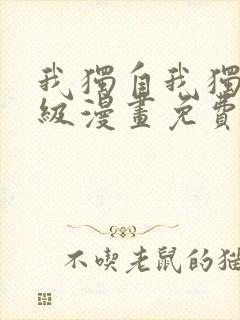 我獨自我獨
級漫畫免費
不喫老鼠的貓